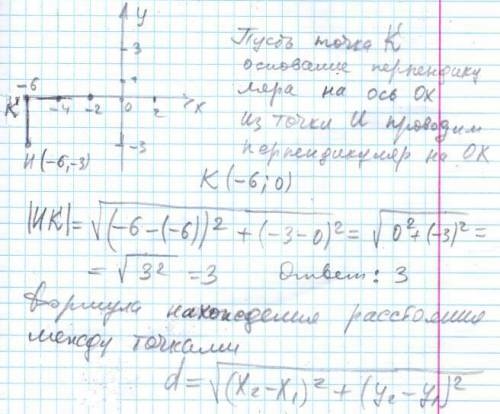 y
3
1
-6 -4 -2 0 2 x
K
-3
И (-6,-3)
Пусть точка K
основание перпендику
ляра на ось OX
из точки И проводим
перпендикуляр на OX
K (-6; 0)
|ИK| = √(-6-(-6))² + (-3-0)² = √0² + (-3)² =
= √3² = 3 Ответ: 3
Формула нахождения расстояния
между точками
d = √(x₂-x₁)² + (y₂-y₁)²